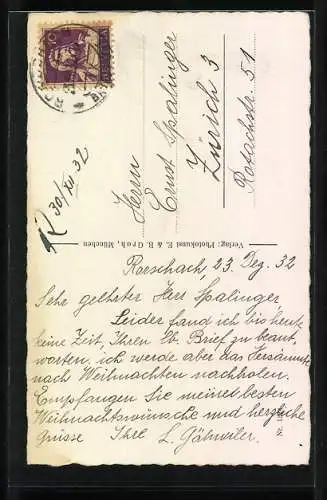 Herrn
Ernst Spalinger
Zürich 3
Rotachstr. 51
30/XII 32
Verlag: Photokunst E. & B. Groh, München
Rorschach, 23. Dez. 32
Sehr geehrter Herr Spalinger,
Leider fand ich bis heute
keine Zeit, Ihren lb. Brief zu beant-
worten. ich werde aber das Versäumte
nach Weihnachten nachholen.
Empfangen Sie meine besten
Weihnachtswünsche und herzliche
Grüsse Ihre L. Gähwiler.